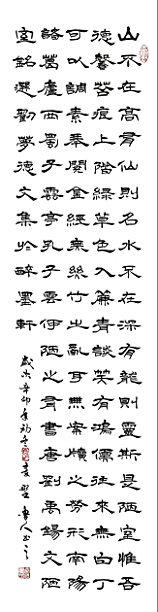 山不在高有仙則名水不在深有龍則靈斯是陋室惟吾
德馨苔痕上階綠草色入簾青談笑有鴻儒往來無白丁
可以調素琴閱金經無絲竹之亂耳無案牘之勞形南陽
諸葛廬西蜀子雲亭孔子云何陋之有書唐劉禹錫文陋
室銘選劉夢德文集於醉墨軒
歲次辛卯年初冬